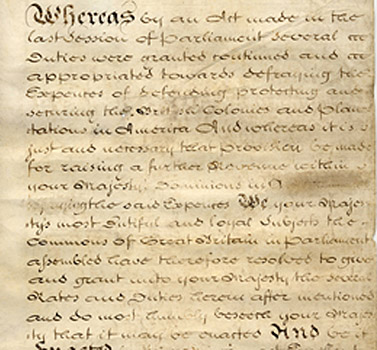 Whereas by an Act made in the
last Session of Parliament several
Duties were granted continued and
appropriated towards defraying the
Expences of defending protecting and
securing the British Colonies and Plan
tations in America And whereas it is
just and necessary that provision be made
for raising a further Revenue within
your Majestys Dominions in
the said Expences We your Majes
tys most Dutiful and loyal Subjects the
Commons of Great Britain in Parliament
assembled have therefore resolved to give
and grant unto your Majesty the several
Rates and Duties herein after mentioned
and do most humbly beseech your Majes
ty that it may be enacted And be it